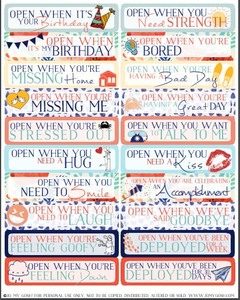 OPEN WHEN IT'S
YOUR Birthday
OPEN WHEN YOU
Need STRENGTH
OPEN WHEN
IT'S MY
BIRTHDAY
OPEN WHEN YOU'RE
BORED
OPEN WHEN YOU'RE
MISSING Home
OPEN WHEN YOU'RE
HAVING A Bad Day
OPEN WHEN YOU'RE
MISSING ME
OPEN WHEN YOU'RE
HAVING A Great DAY
OPEN WHEN YOU'RE
STRESSED OUT
OPEN WHEN YOU WANT
TO TALK TO ME
OPEN WHEN YOU
NEED A HUG
OPEN WHEN YOU
NEED A Kiss
OPEN WHEN YOU
NEED TO Smile
OPEN WHEN YOU CELEBRATE
AN Accomplishment
OPEN WHEN YOU
NEED TO LAUGH
OPEN WHEN WE'VE
SAID GOODBYE
OPEN WHEN YOU'RE
FEELING GOOFY
OPEN WHEN YOU'VE BEEN
DEPLOYED
OPEN WHEN YOU'RE
Feeling Down
OPEN WHEN YOU'VE BEEN
DEPLOYED
FOR PERSONAL USE ONLY. NOT TO BE COPIED, DISTRIBUTED, ALTERED OR SOLD.